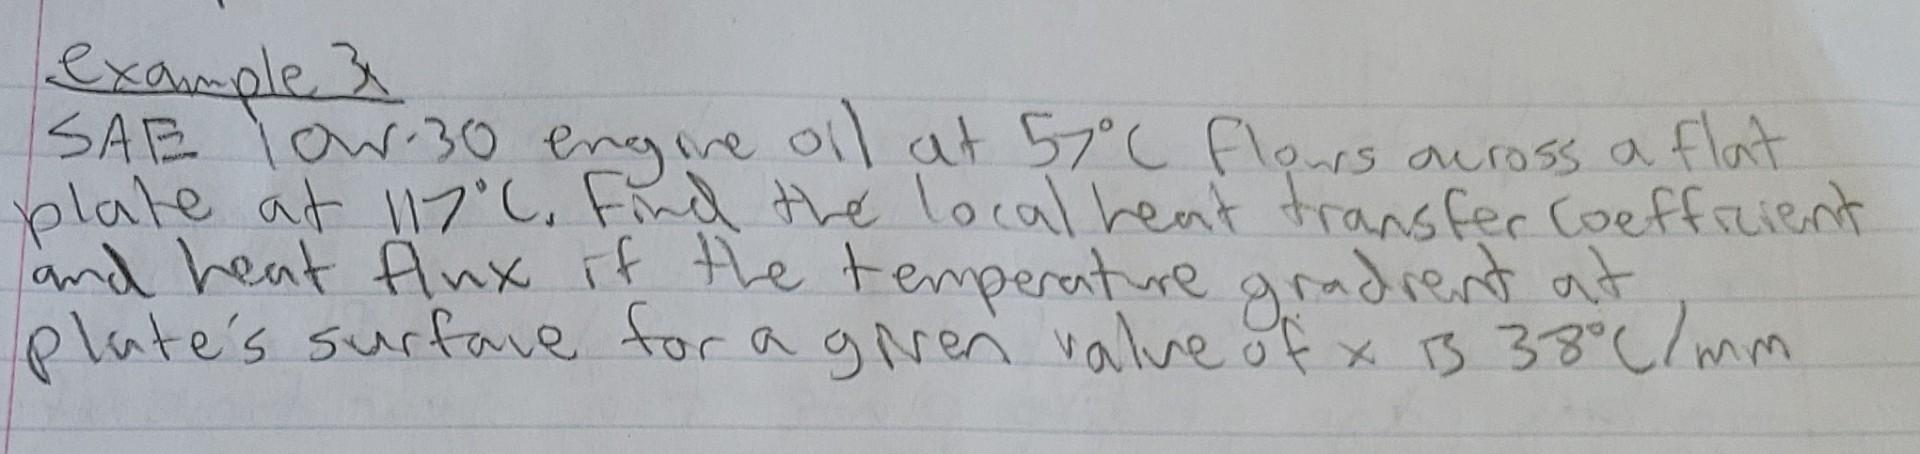 example 3
SAE 10w-30 engine oil at 57°C flows across a flat
plate at 117°C. Find the local heat transfer coefficient
and heat flux if the temperature gradient at
plate's surface for a given value of x is 38°C/mm